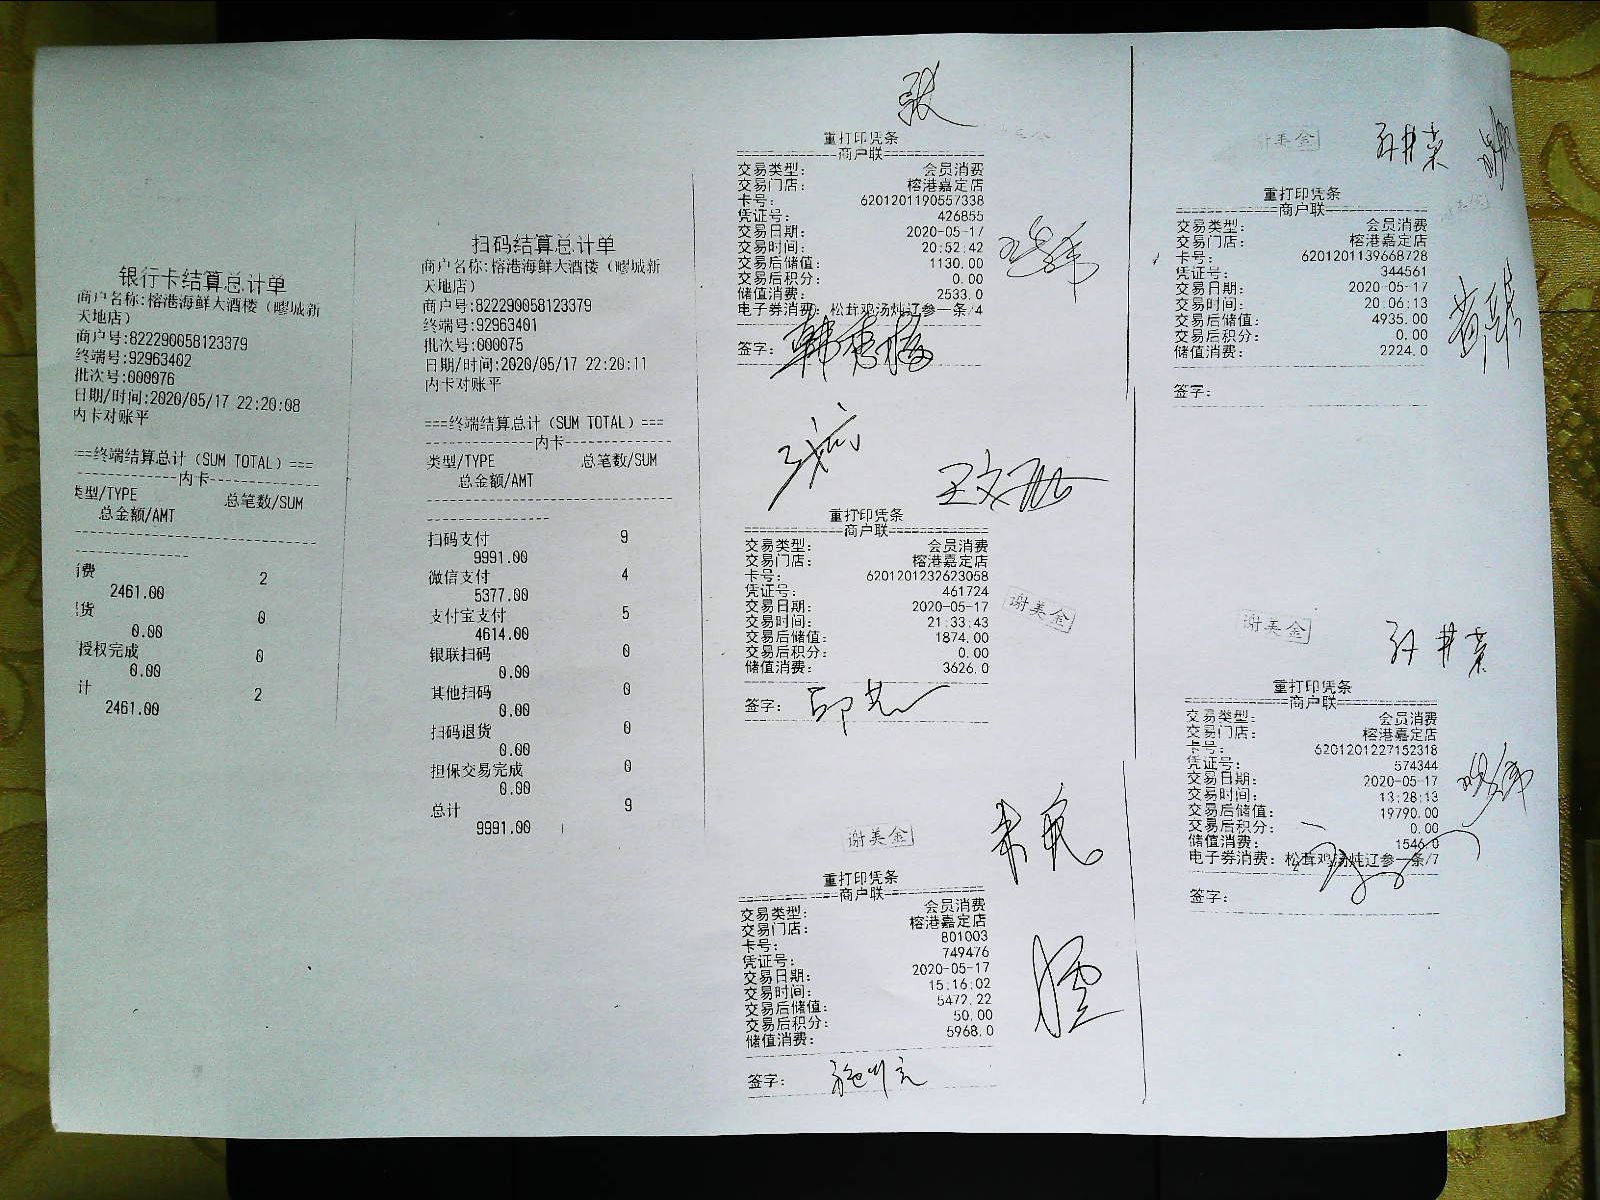 银行卡结算总计单
商户名称:榕港海鲜大酒楼（疁城新
天地店）
商户号:822290058123379
终端号:92963402
批次号:000076
日期/时间:2020/05/17 22:20:08
内卡对账平
===终端结算总计（SUM TOTAL）===
内卡
类型/TYPE 总笔数/SUM
总金额/AMT
消费 2
2461.00
货 0
0.00
授权完成 0
0.00
计 2
2461.00
扫码结算总计单
商户名称:榕港海鲜大酒楼（疁城新
天地店）
商户号:822290058123379
终端号:92963401
批次号:000075
日期/时间:2020/05/17 22:20:11
内卡对账平
===终端结算总计（SUM TOTAL）===
内卡
类型/TYPE 总笔数/SUM
总金额/AMT
扫码支付 9
9991.00
微信支付 4
5377.00
支付宝支付 5
4614.00
银联扫码 0
0.00
其他扫码 0
0.00
扫码退货 0
0.00
担保交易完成 0
0.00
总计 9
9991.00
张
重打印凭条
商户联
交易类型: 会员消费
交易门店: 榕港嘉定店
卡号: 6201201190557338
凭证号: 426855
交易日期: 2020-05-17
交易时间: 20:52:42
交易后储值: 1130.00
交易后积分: 0.00
储值消费: 2533.0
电子券消费: 松茸鸡汤炖辽参一条/4
签字: 韩秀梅
王文
重打印凭条
商户联
交易类型: 会员消费
交易门店: 榕港嘉定店
卡号: 6201201232623058
凭证号: 461724
交易日期: 2020-05-17
交易时间: 21:33:43
交易后储值: 1874.00
交易后积分: 0.00
储值消费: 3626.0
谢美金
签字:
谢美金
重打印凭条
商户联
交易类型: 会员消费
交易门店: 榕港嘉定店
卡号: 801003
凭证号: 749476
交易日期: 2020-05-17
交易时间: 15:16:02
交易后储值: 5472.22
交易后积分: 50.00
储值消费: 5968.0
签字:
谢美金
重打印凭条
商户联
交易类型: 会员消费
交易门店: 榕港嘉定店
卡号: 6201201139668728
凭证号: 344561
交易日期: 2020-05-17
交易时间: 20:06:13
交易后储值: 4935.00
交易后积分: 0.00
储值消费: 2224.0
签字:
谢美金
重打印凭条
商户联
交易类型: 会员消费
交易门店: 榕港嘉定店
卡号: 6201201227152318
凭证号: 574344
交易日期: 2020-05-17
交易时间: 13:28:13
交易后储值: 19790.00
交易后积分: 0.00
储值消费: 1546.0
电子券消费: 松茸鸡汤炖辽参一条/7
签字: